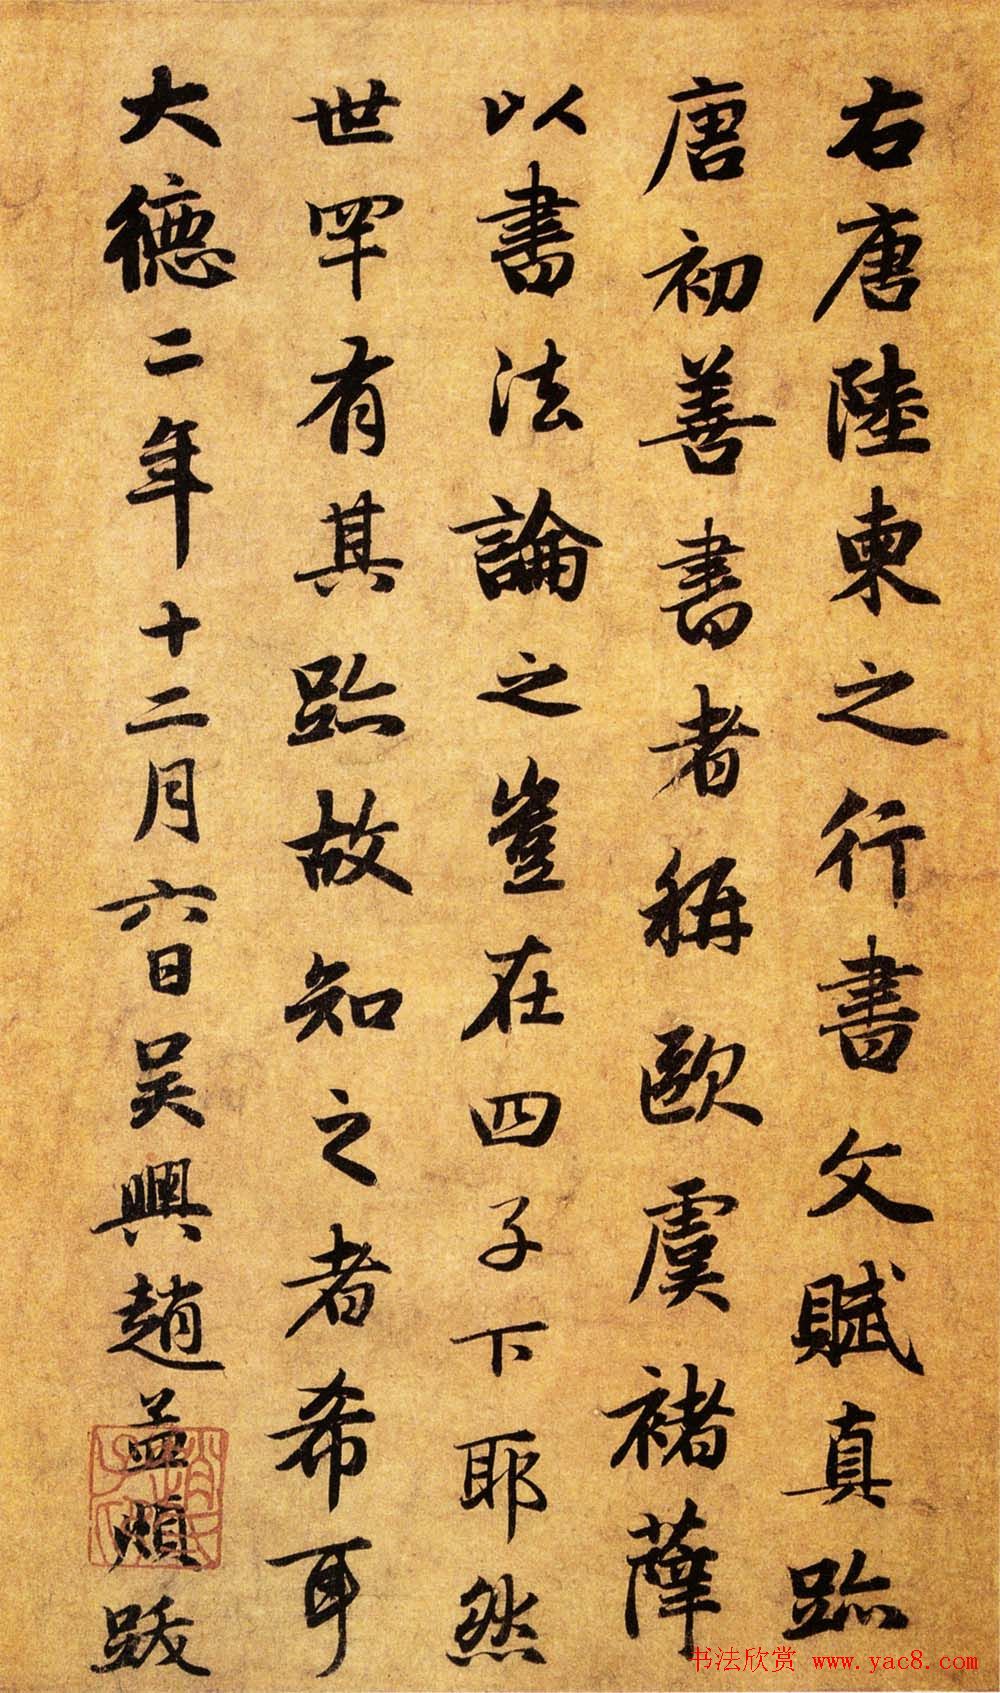 右唐陸柬之行書文賦真跡
唐初善書者稱歐虞褚薛
以書法論之豈在四子下耶然
世罕有其跡故知之者希耳
大德二年十二月六日吴興趙孟頫跋
趙氏子昂
书法欣赏 www.yac8.com